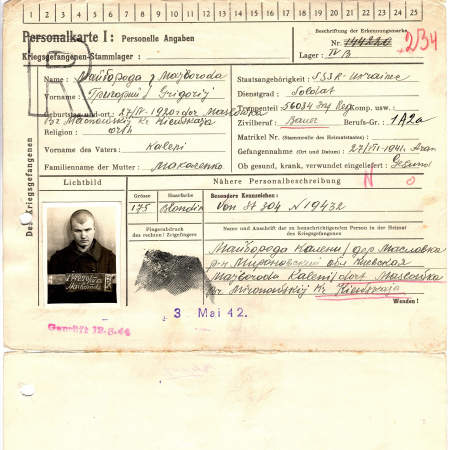 1 2 3 4 5 6 7 8 9 10 11 12 13 14 15 16 17 18 19 20 21 22 23 24 25
Personalkarte I: Personelle Angaben
Kriegsgefangenen-Stammlager:
Beschriftung der Erkennungsmarke
Nr. 144220
Lager: IV B
2/34
R
Des Kriegsgefangenen
Name: Майборода / Mazboroda
Vorname: Григорий / Grigorij
Geburtstag und -ort: 27/IV-1920 dor Maslowka
Religion: orth
Vorname des Vaters: Kaleni
Familienname der Mutter: Makarenko
Staatsangehörigkeit: SSSR-Ukrainec
Dienstgrad: Soldat
Truppenteil: 56034 Inf Reg Komp. usw.:
Zivilberuf: Bauer Berufs-Gr.: 1A2a
Matrikel Nr. (Stammrolle des Heimatstaates):
Gefangennahme (Ort und Datum): 27/VII-1941.
Ob gesund, krank, verwundet eingeliefert: Gesund
Lichtbild
Nähere Personalbeschreibung
N o
Grösse Haarfarbe Besondere Kennzeichen:
175 blondin Von St 304 N 19432
Fingerabdruck
des rechten / Zeigefingers
Name und Anschrift der zu benachrichtigenden Person in der Heimat
des Kriegsgefangenen
Майборода Калени / дер Масловка
р-н. Мироновский обл Киевская
Mazboroda Kaleni / dorf Maslowka
Kr. Kiewskaja
Wenden!
3 Mai 42.
Geprüft 12-6-44